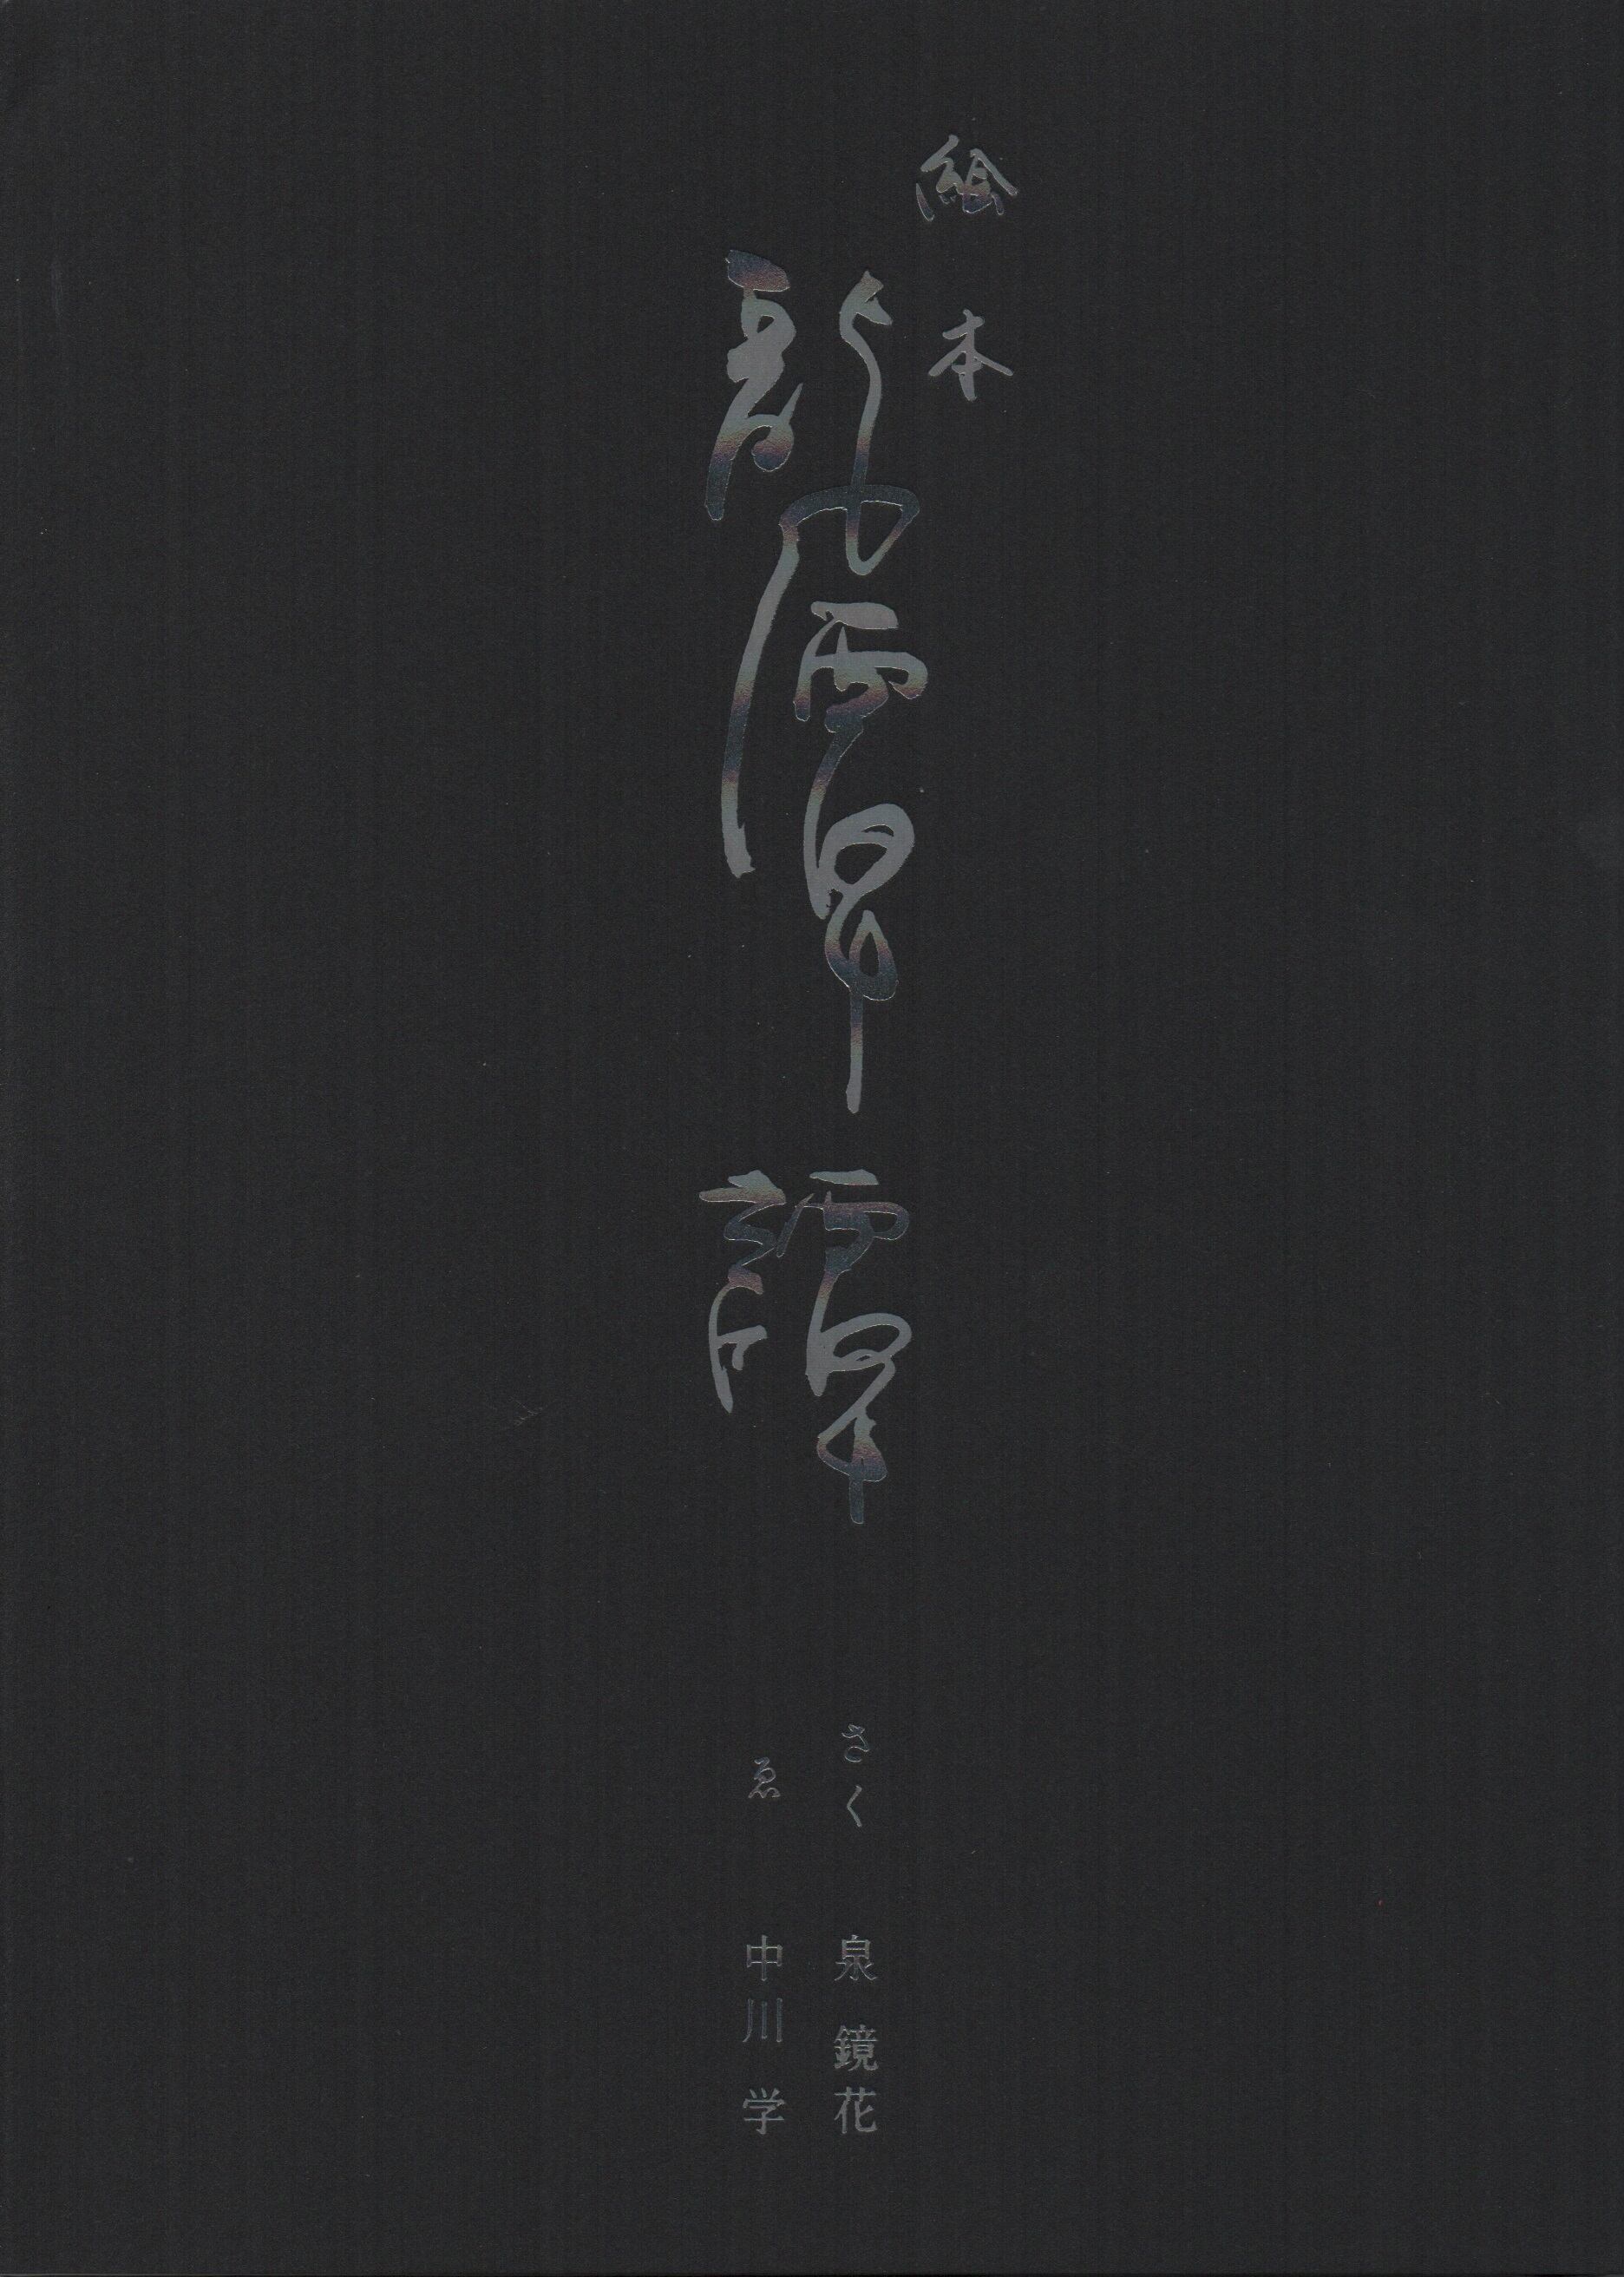 絵本
龍潭譚
さく 泉 鏡花
ゑ 中川 学